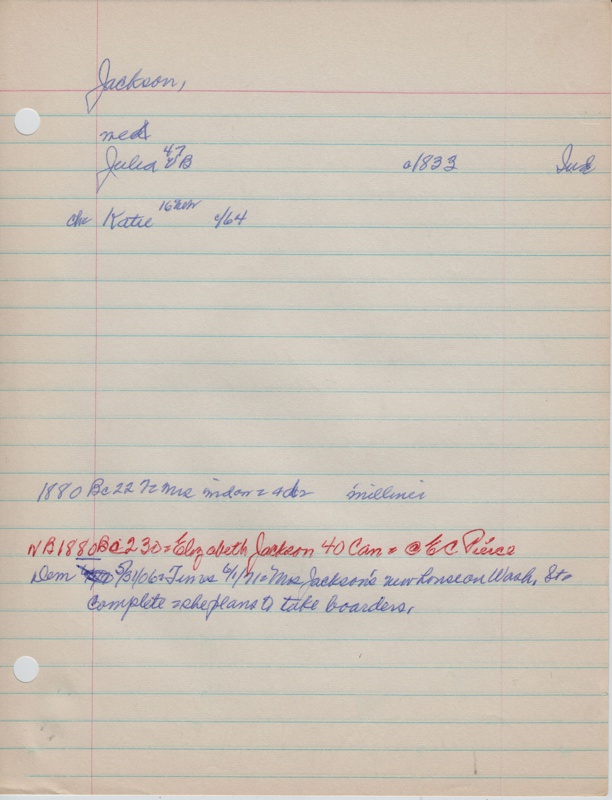 Jackson,
med
Julia 47 B c1833 Ind
ch Katie 16 c/64
1880 Bc227= Mrs = milliner
NB 1880 Bc230= Elizabeth Jackson 40 Can = @ E C Pierce
Dem 5/31/06= Item vs 4/1/71= Mrs Jackson's new house on Wash, St=
complete = she plans to take boarders.